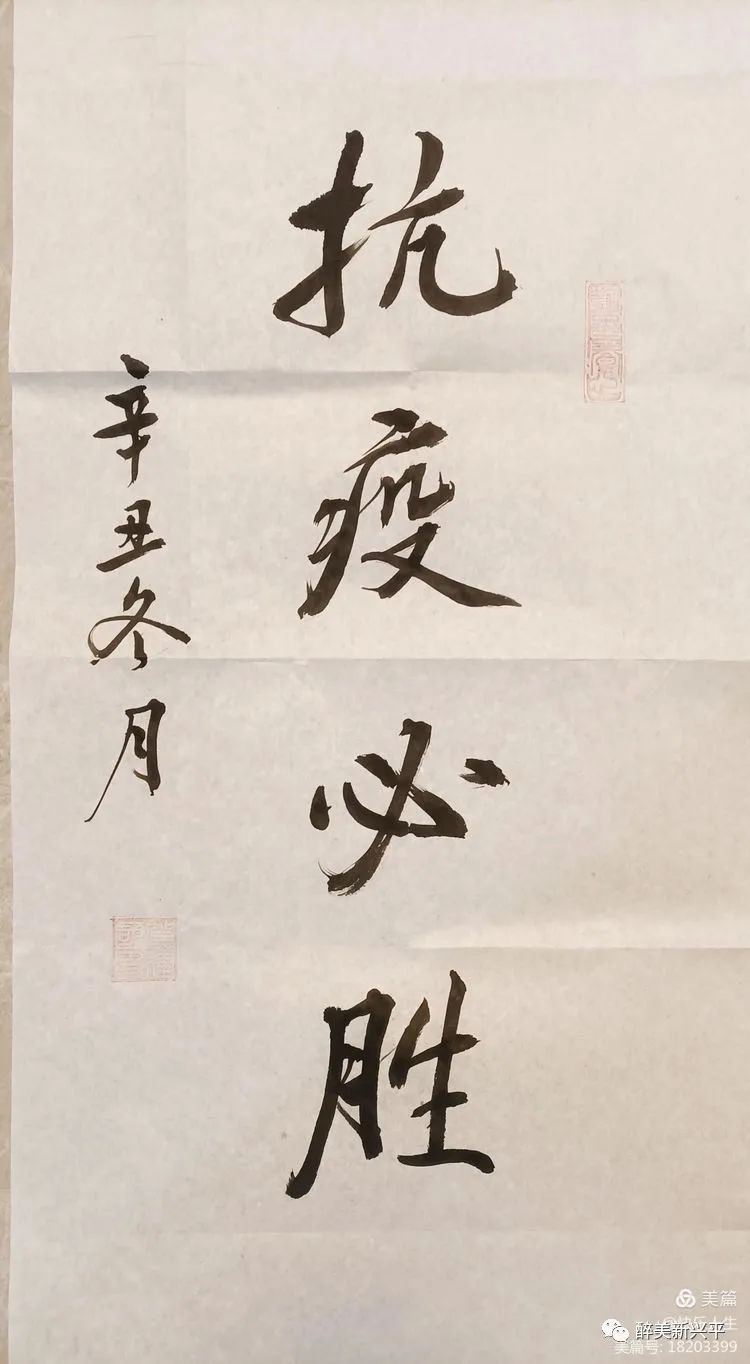 抗疫必胜
辛丑冬月
美篇
醉美新兴平
美篇号: 18203399